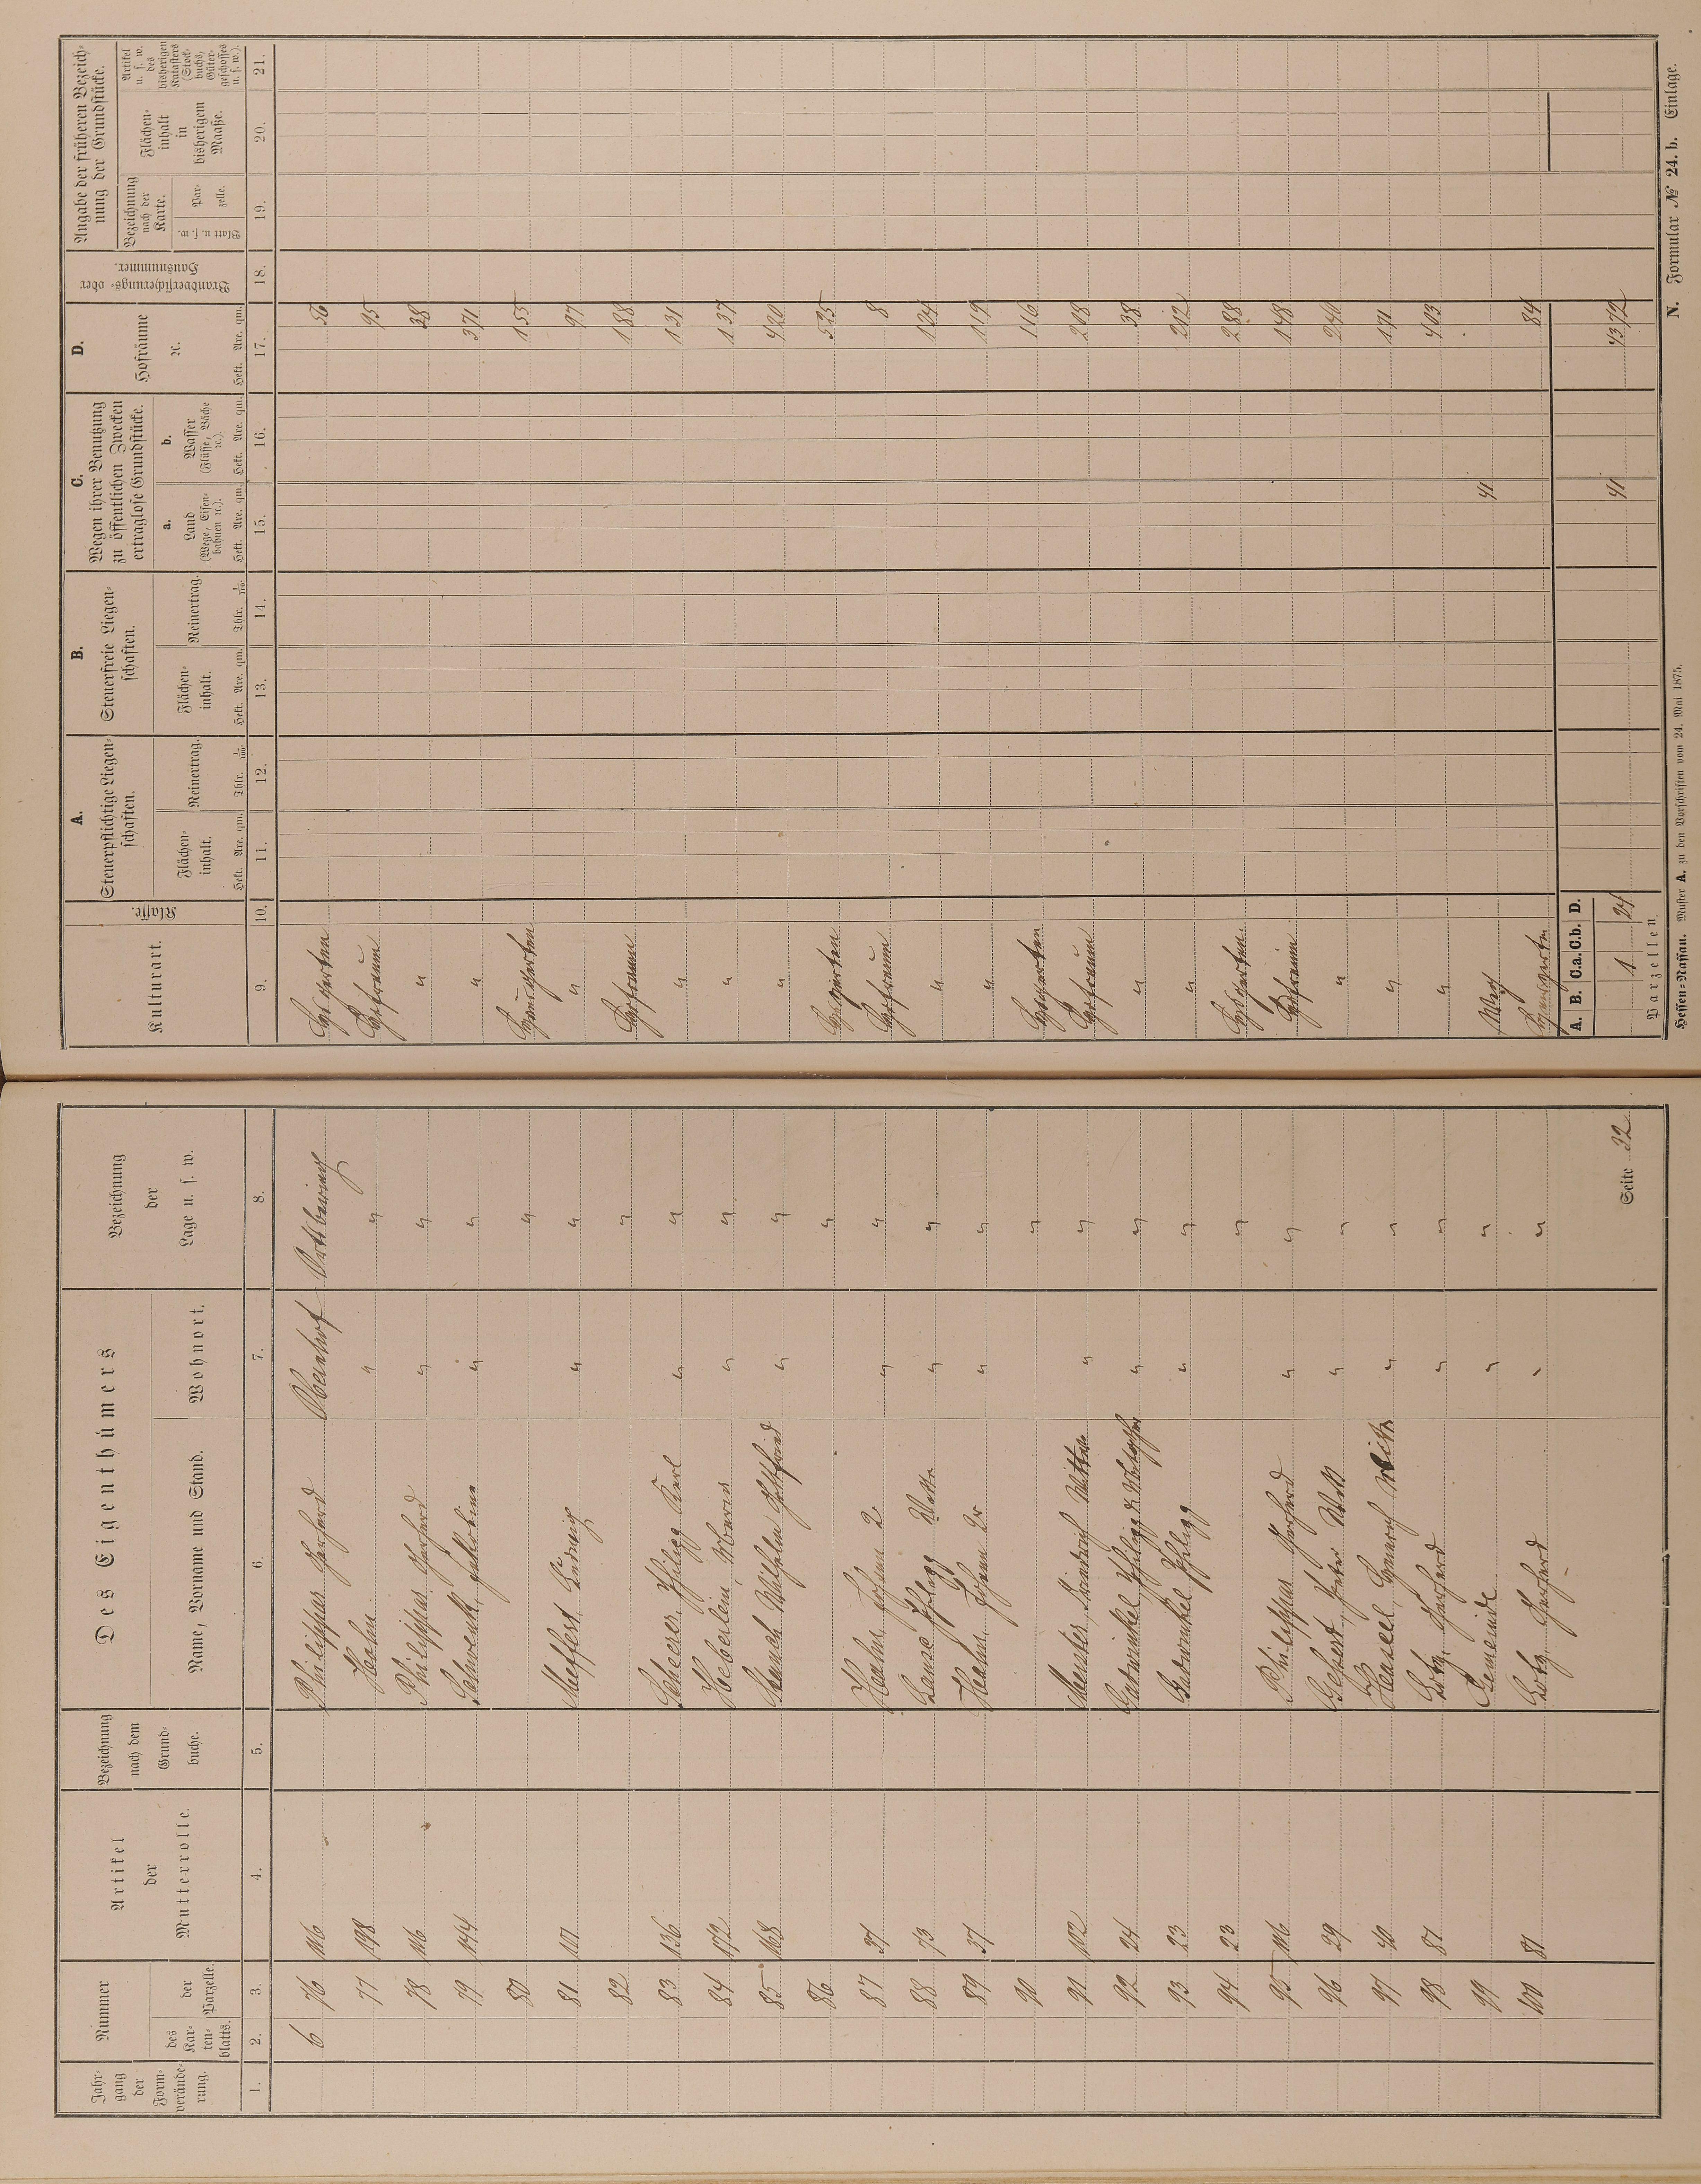 Jahrgang der Formveränderung.
Nummer
des Kartenblatts.
der Parzelle.
Artikel der Mutterrolle.
Bezeichnung nach dem Grundbuche.
Des Eigenthümers
Name, Vorname und Stand.
Wohnort.
Bezeichnung der Lage u. s. w.
1. 2. 3. 4. 5. 6. 7. 8.
6 76 116 Philippus Gerhard Obernhof Ortsbering
77 198 Hahn " "
78 116 Philippus Gerhard " "
79 144 Schwenk, " "
80 "
81 101 Meffert, Ludwig " "
82 "
83 136 Scheerer, Philipp Karl " "
84 172 Heberlein, " "
85 168 Wilhelm Gottfried " "
86 "
87 37 Hahn, Johann 2r " "
88 73 Philipp " "
89 37 Hahn, Johann 2r " "
90 "
91 102 Friedrich Wittwe " "
92 24 Philipp " "
93 23 Philipp " "
94 23 "
95 116 Philippus Gerhard " "
96 29 Peter " "
97 40 Heinrich " "
98 81 Lotz, Gerhard " "
99 Gemeinde " "
100 81 Lotz, Gerhard " "
Seite 32
Kulturart.
Klasse.
A.
Steuerpflichtige Liegenschaften.
Flächeninhalt.
Hekt. Are. qm.
Reinertrag.
Thlr. 1/100.
B.
Steuerfreie Liegenschaften.
Flächeninhalt.
Hekt. Are. qm.
Reinertrag.
Thlr. 1/100.
C.
Wegen ihrer Benutzung zu öffentlichen Zwecken ertraglose Grundstücke.
a. Land (Wege, Eisenbahnen ꝛc.).
Hekt. Are. qm.
b. Wasser (Flüsse, Bäche ꝛc.).
Hekt. Are. qm.
D.
Hofräume ꝛc.
Hekt. Are. qm.
Brandversicherungs- oder Hausnummer.
Angabe der früheren Bezeichnung der Grundstücke.
Bezeichnung nach der Karte.
Blatt u. s. w.
Parzelle.
Flächeninhalt in bisherigem Maaße.
Artikel u. s. w. des bisherigen Katasters (Stockbuchs, Gütergeschosses u. s. w.).
9. 10. 11. 12. 13. 14. 15. 16. 17. 18. 19. 20. 21.
Hausgarten 56
Hofraum 95
" 38
" 371
Hausgarten 155
" 97
Hofraum 188
" 131
" 137
" 420
Hausgarten 535
Hofraum 8
" 104
" 119
Hausgarten 116
Hofraum 208
" 38
" 212
Hausgarten 288
Hofraum 148
" 240
" 171
" 403
Weg 41
Hausgarten 84
A. B. C.a. C.b. D.
1 24 41 4372
Parzellen.
Hessen-Nassau. Muster A. zu den Vorschriften vom 24. Mai 1875.
N. Formular № 24. b. Einlage.